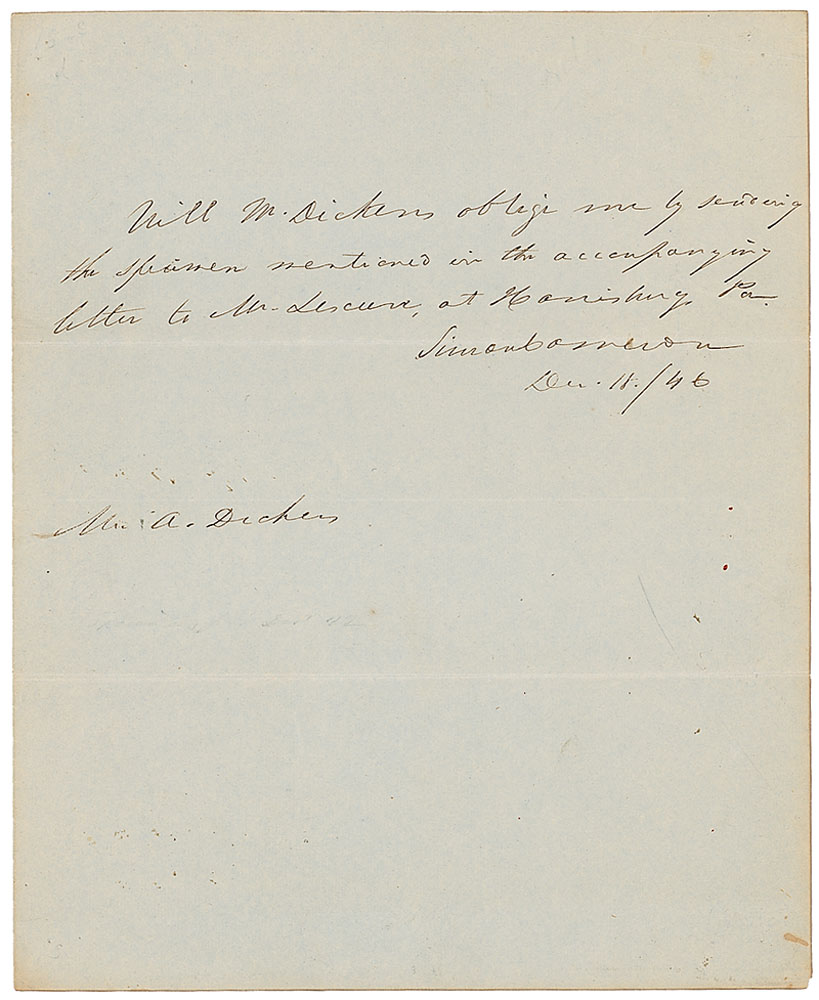 Will Mr. Dickens oblige me by sending
the specimen mentioned in the accompanying
letter to Mr. Lescure, at Harrisburg, Pa.
Simon Cameron
Dec. 18./46
Mr. A. Dickens